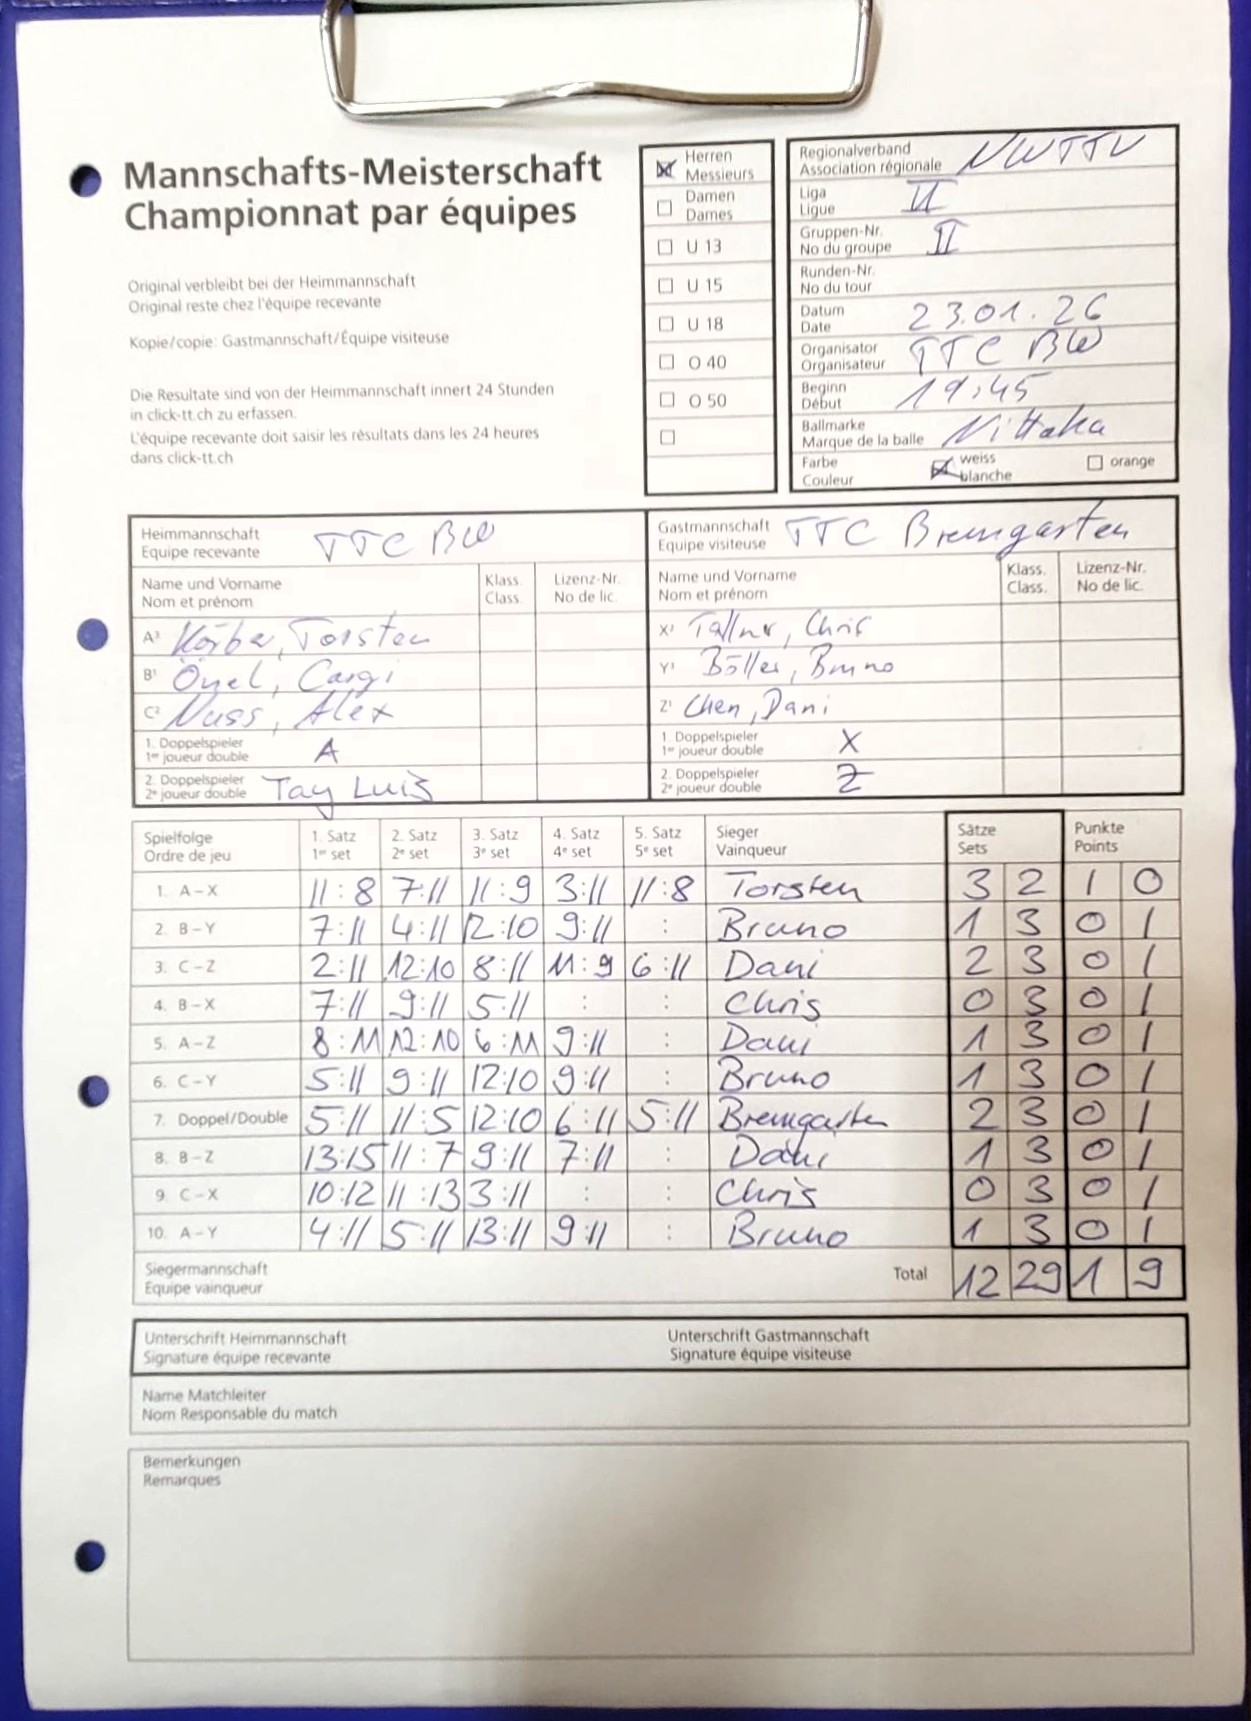 Mannschafts-Meisterschaft
Championnat par équipes
Original verbleibt bei der Heimmannschaft
Original reste chez l'équipe recevante
Kopie/copie: Gastmannschaft/Équipe visiteuse
Die Resultate sind von der Heimmannschaft innert 24 Stunden
in click-tt.ch zu erfassen.
L'équipe recevante doit saisir les résultats dans les 24 heures
dans click-tt.ch
Herren
Messieurs
Damen
Dames
U 13
U 15
U 18
O 40
O 50
Regionalverband
Association régionale NWTTV
Liga
Ligue II
Gruppen-Nr.
No du groupe II
Runden-Nr.
No du tour
Datum
Date 23.01.26
Organisator
Organisateur TTC BW
Beginn
Début 19:45
Ballmarke
Marque de la balle Nittaku
Farbe weiss orange
Couleur blanche
Heimmannschaft
Equipe recevante TTC BW
Name und Vorname Klass. Lizenz-Nr.
Nom et prénom Class. No de lic.
A³ Körber, Torsten
B¹ Önel, Cargi
C² Nuss, Alex
1. Doppelspieler
1er joueur double A
2. Doppelspieler
2e joueur double Tay Luis
Gastmannschaft
Equipe visiteuse TTC Bremgarten
Name und Vorname Klass. Lizenz-Nr.
Nom et prénom Class. No de lic.
X² Tallner, Chris
Y¹ Böller, Bruno
Z¹ Chen, Dani
1. Doppelspieler
1er joueur double X
2. Doppelspieler
2e joueur double Z
Spielfolge 1. Satz 2. Satz 3. Satz 4. Satz 5. Satz Sieger Sätze Punkte
Ordre de jeu 1er set 2e set 3e set 4e set 5e set Vainqueur Sets Points
1. A – X 11:8 7:11 11:9 3:11 11:8 Torsten 3 2 1 0
2. B – Y 7:11 4:11 12:10 9:11 : Bruno 1 3 0 1
3. C – Z 2:11 12:10 8:11 11:9 6:11 Dani 2 3 0 1
4. B – X 7:11 9:11 5:11 : : Chris 0 3 0 1
5. A – Z 8:11 12:10 6:11 9:11 : Dani 1 3 0 1
6. C – Y 5:11 9:11 12:10 9:11 : Bruno 1 3 0 1
7. Doppel/Double 5:11 11:5 12:10 6:11 5:11 Bremgarten 2 3 0 1
8. B – Z 13:15 11:7 9:11 7:11 : Dani 1 3 0 1
9. C – X 10:12 11:13 3:11 : : Chris 0 3 0 1
10. A – Y 4:11 5:11 13:11 9:11 : Bruno 1 3 0 1
Siegermannschaft
Equipe vainqueur Total 12 29 1 9
Unterschrift Heimmannschaft Unterschrift Gastmannschaft
Signature équipe recevante Signature équipe visiteuse
Name Matchleiter
Nom Responsable du match
Bemerkungen
Remarques